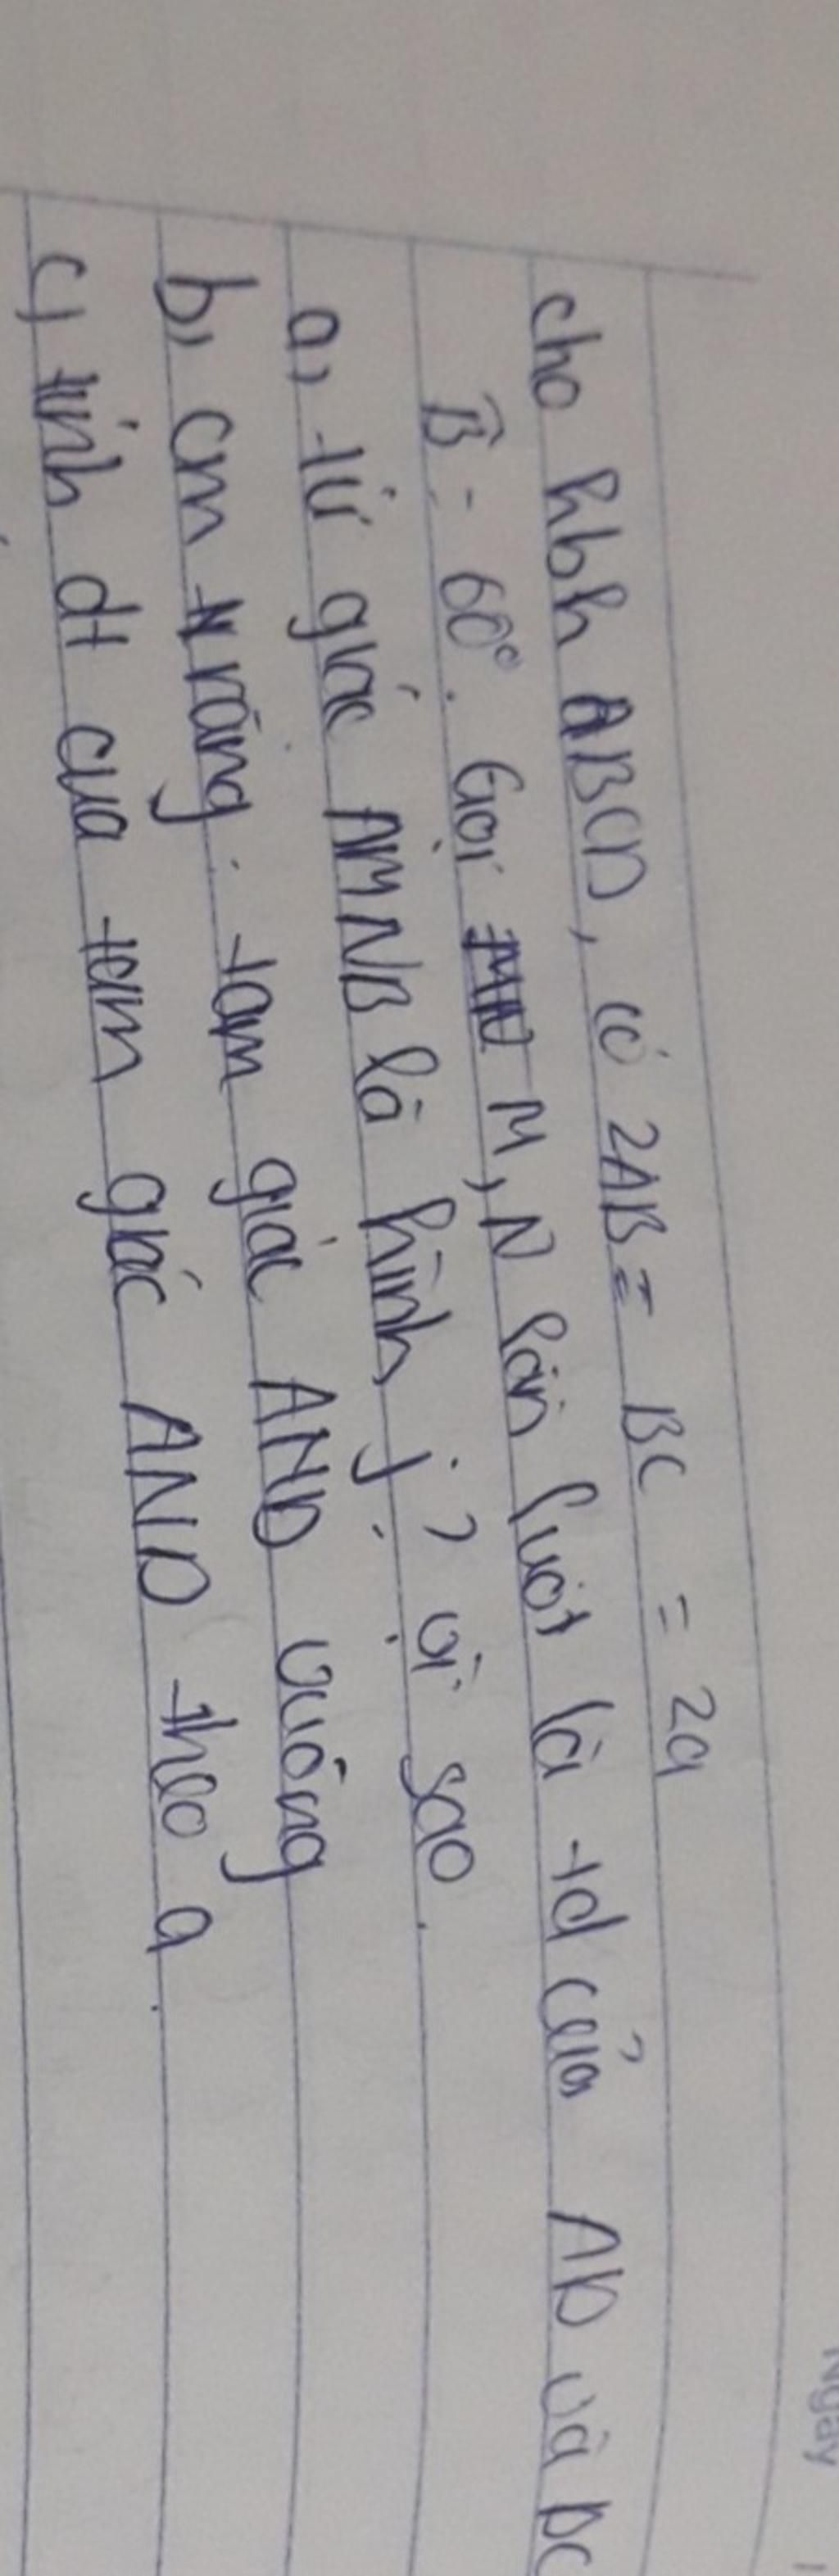 cho hbh ABCD, có 2AB = BC = 2a
B̂ = 60°. Gọi M, N lần lượt là td của AD và BC
a, tứ giác AMNB là hình j? vì sao.
b, cm rằng tam giác AND vuông
c, tính dt cua tam giác AND theo a.
Ngày